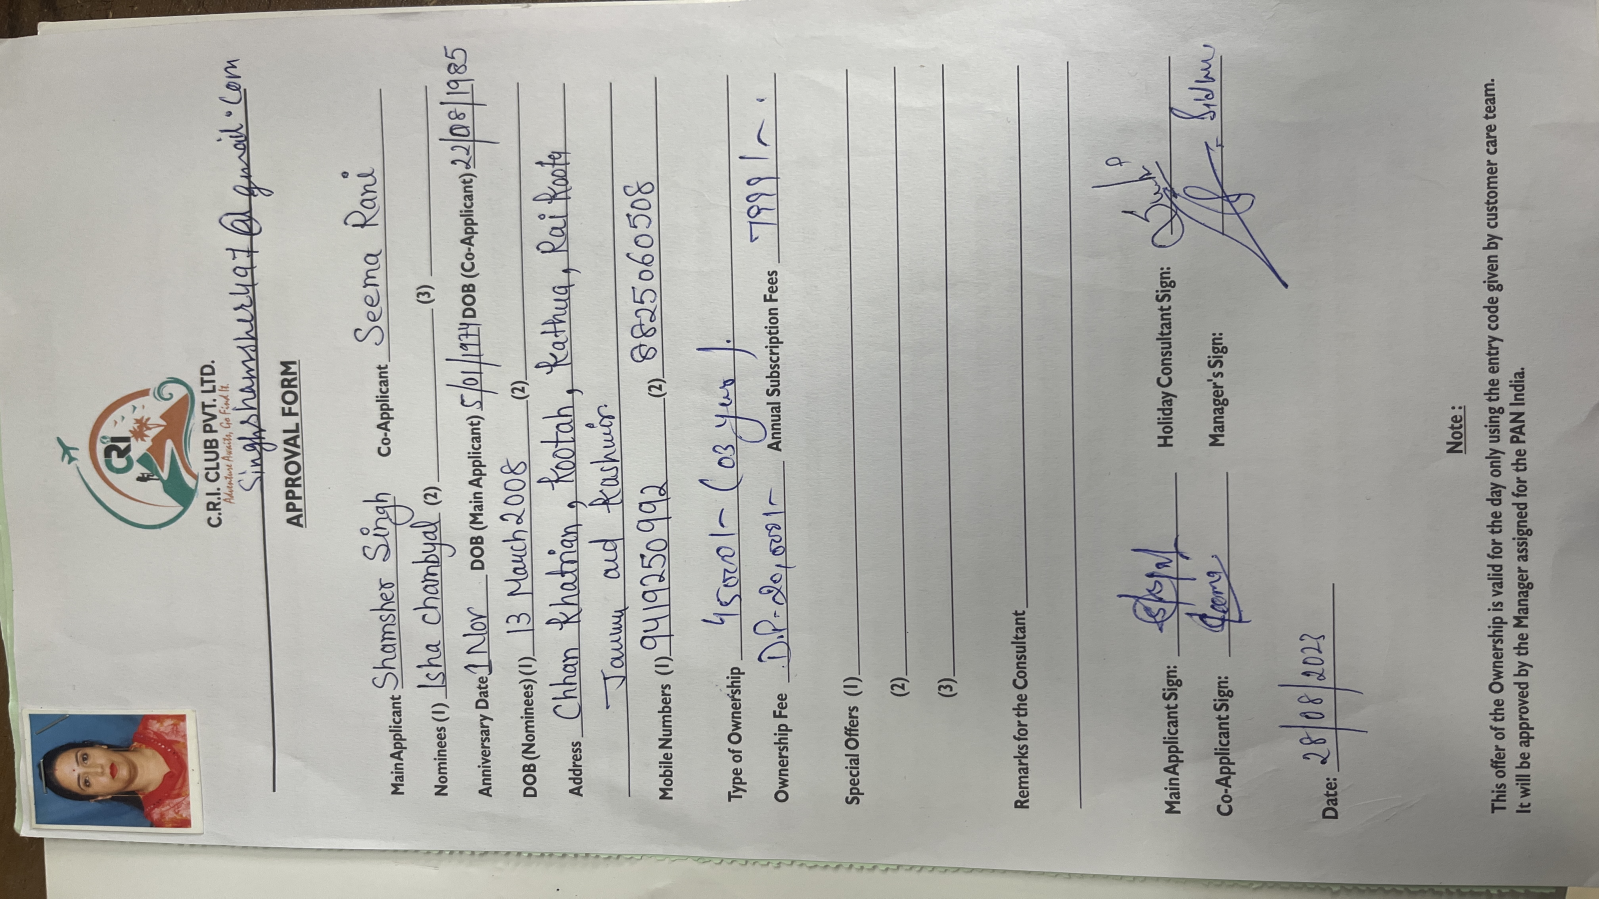 CRI
C.R.I. CLUB PVT. LTD.
Adventure Awaits, Go Find It.
Singhshamsher497@gmail.com
APPROVAL FORM
Main Applicant Shamsher Singh Co-Applicant Seema Rani
Nominees (1) Isha chambyal (2) (3)
Anniversary Date 1 Nov DOB (Main Applicant) 5/01/1974 DOB (Co-Applicant) 22/08/1985
DOB (Nominees) (1) 13 March 2008 (2)
Address Chhan Khatrian, Kootah, Kathua, Rai Kooty
Jammu and Kashmir
Mobile Numbers (1) 9419250992 (2) 8825060508
Type of Ownership 45000/- (03 year).
Ownership Fee D.P-20,000/- Annual Subscription Fees 7999/-.
Special Offers (1)
(2)
(3)
Remarks for the Consultant
Main Applicant Sign: Holiday Consultant Sign:
Co-Applicant Sign: Seema Manager's Sign: Sidhu
Date: 28/08/2023
Note :
This offer of the Ownership is valid for the day only using the entry code given by customer care team.
It will be approved by the Manager assigned for the PAN India.